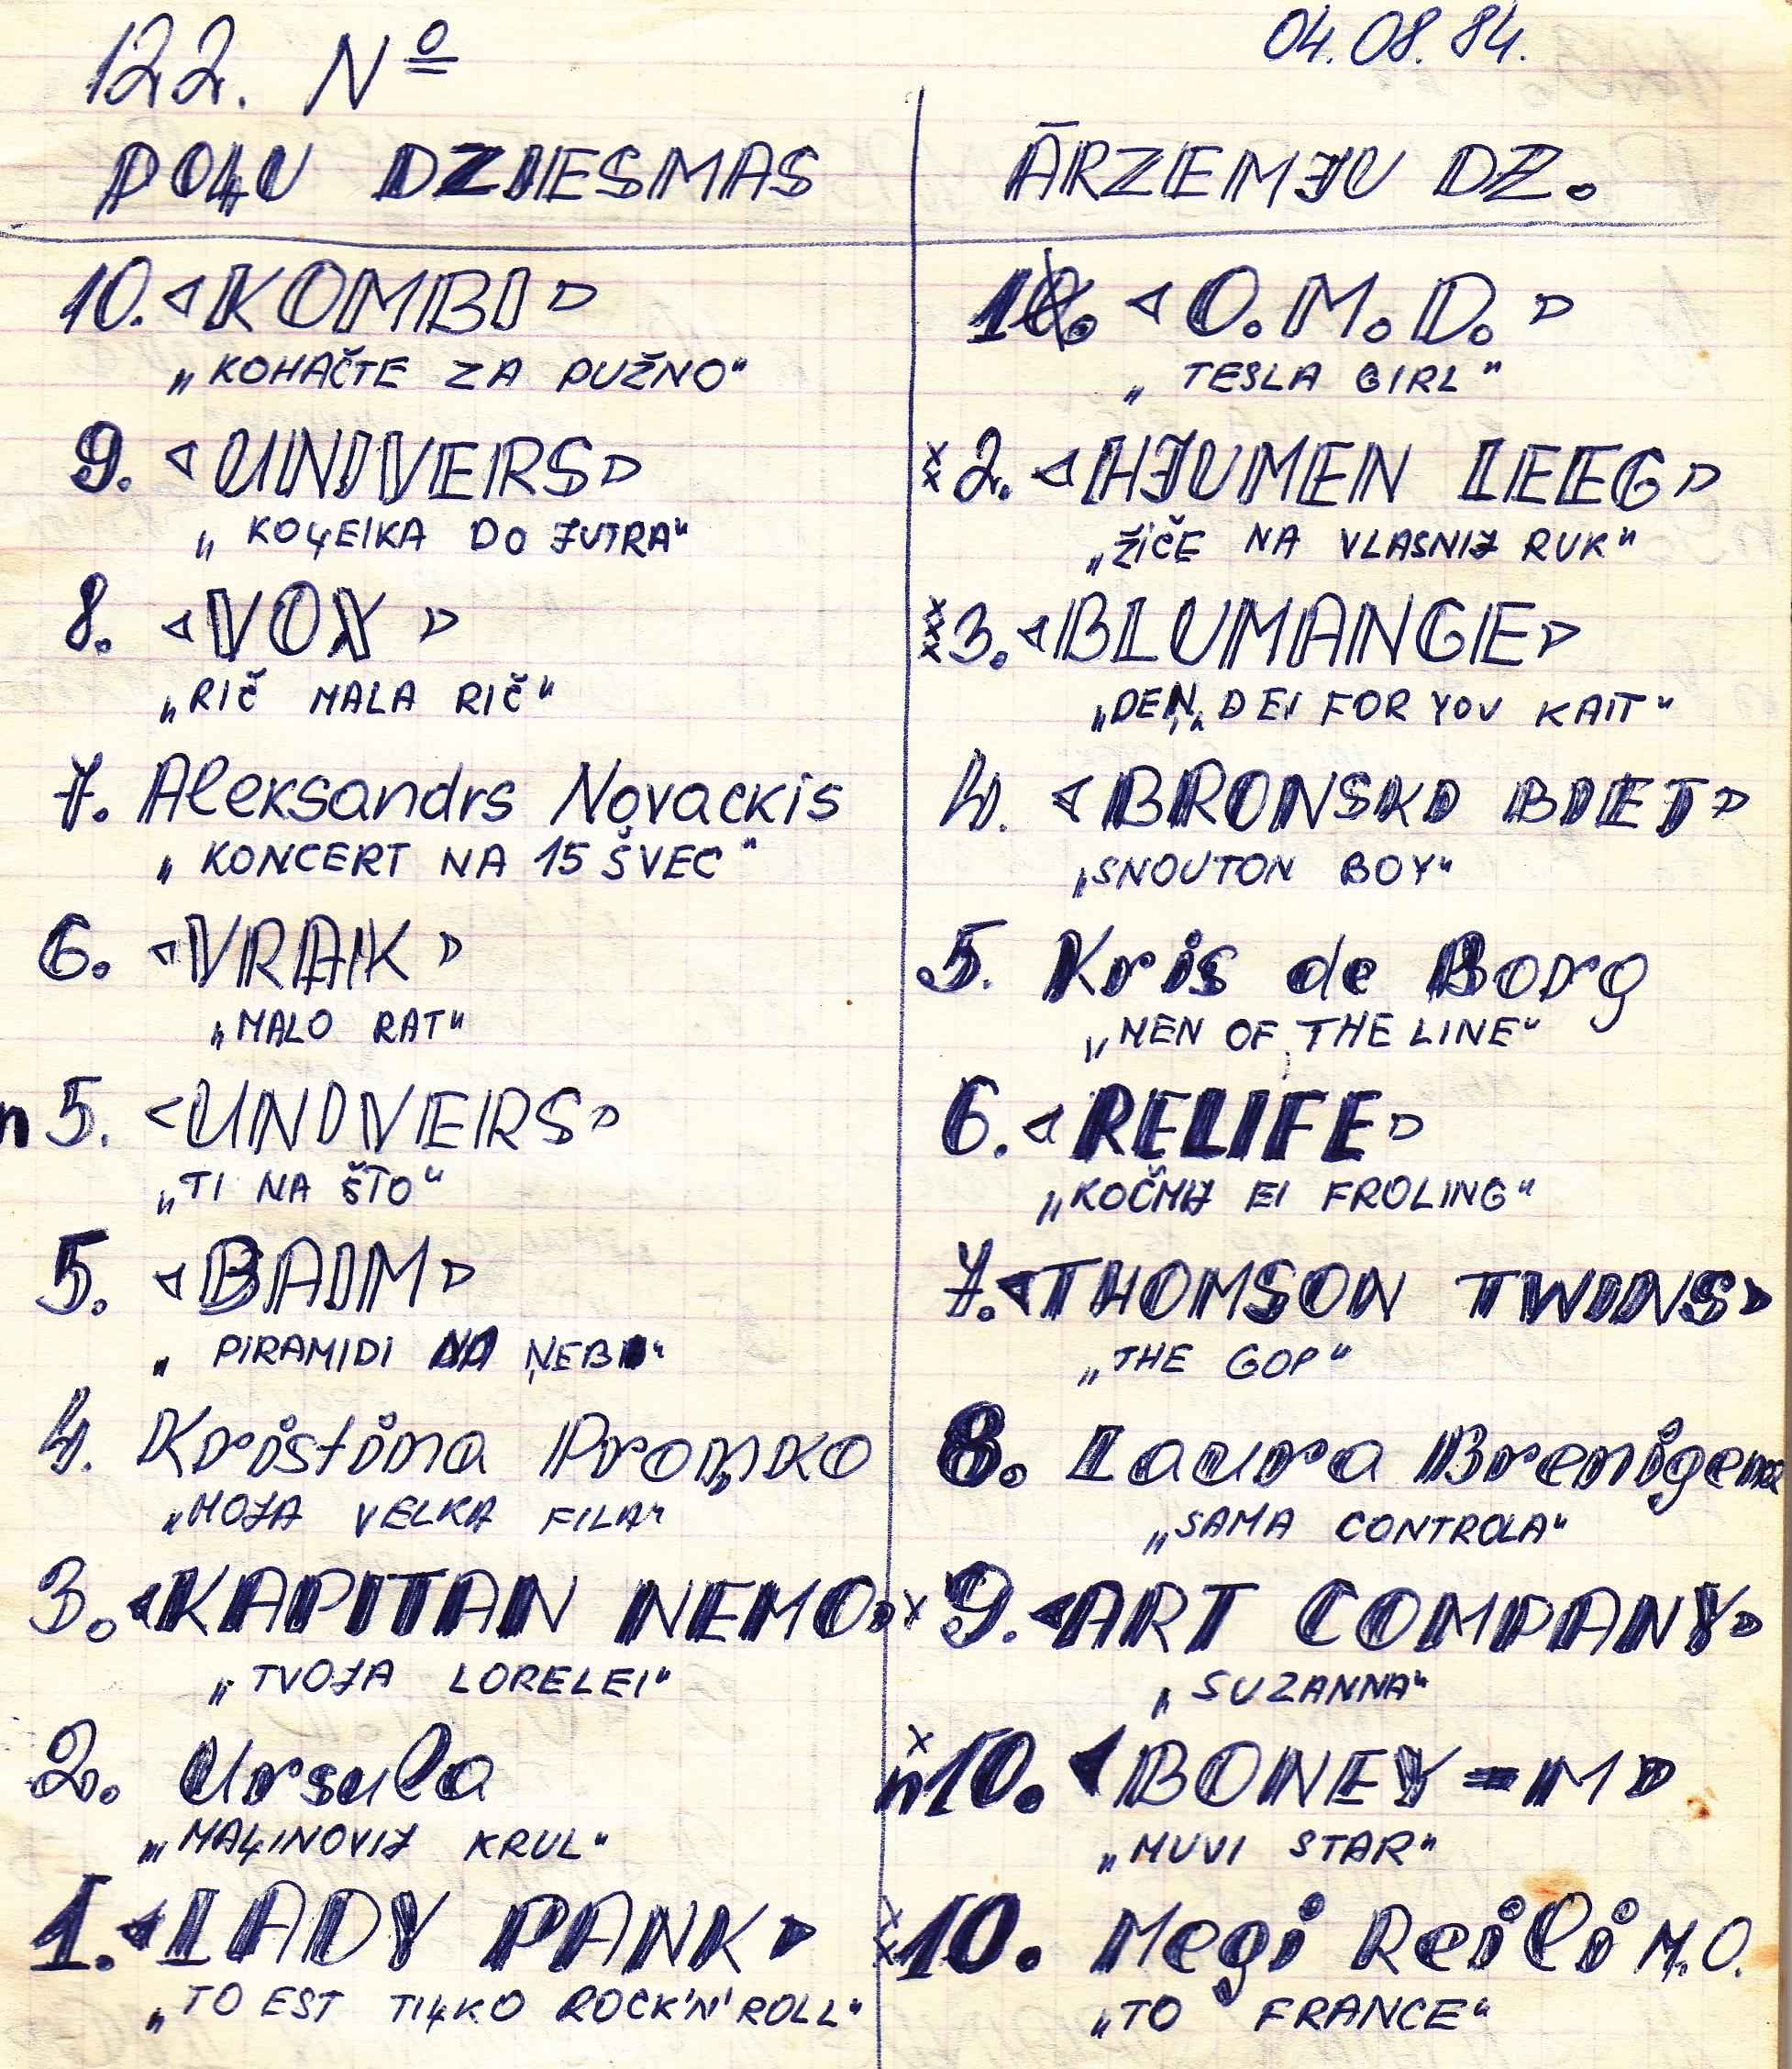 122. Nº
04.08.84.
POĻU DZIESMAS
10. «KOMBI»
„KOHAČTE ZA PUŽNO"
9. «UNIVERS»
„KOĻEIKA DO JUTRA"
8. «VOX»
„RIČ MALA RIČ"
7. Aleksandrs Novackis
„KONCERT NA 15 ŠVEC"
6. «VRAIK»
„MALO RAT"
n 5. «UNIVERS»
„TI NA ŠTO"
5. «BAIM»
„PIRAMIDI NA ŅEBI"
4. Kristina Proņko
„MOJA VELKA FILA"
3. «KAPITAN NEMO»
„TVOJA LORELEI"
2. Ursula
„MAĻINOVIJ KRUL"
1. «LADY PANK»
„TO EST TIĻKO ROCK'N'ROLL"
ĀRZEMJU DZ.
1. «O.M.D.»
„TESLA GIRL"
xx 2. «HJUMEN LEEG»
„ŽIČE NA VLASNIJ RUK"
xxx 3. «BLUMANGE»
„DEŅ, DEI FOR YOU KAIT"
4. «BRONSKI BIET»
„SNOUTON BOY"
5. Kris de Borg
„MEN OF THE LINE"
6. «RELIFE»
„KOČMIJ EI FROLING"
7. «THOMSON TWINS»
„THE GOP"
8. Laura Brenigena
„SAMA CONTROLA"
x 9. «ART COMPANY»
„SUZANNA"
x n 10. «BONEY=M»
„MUVI STAR"
xx 10. Megi Reili M.O.
„TO FRANCE"